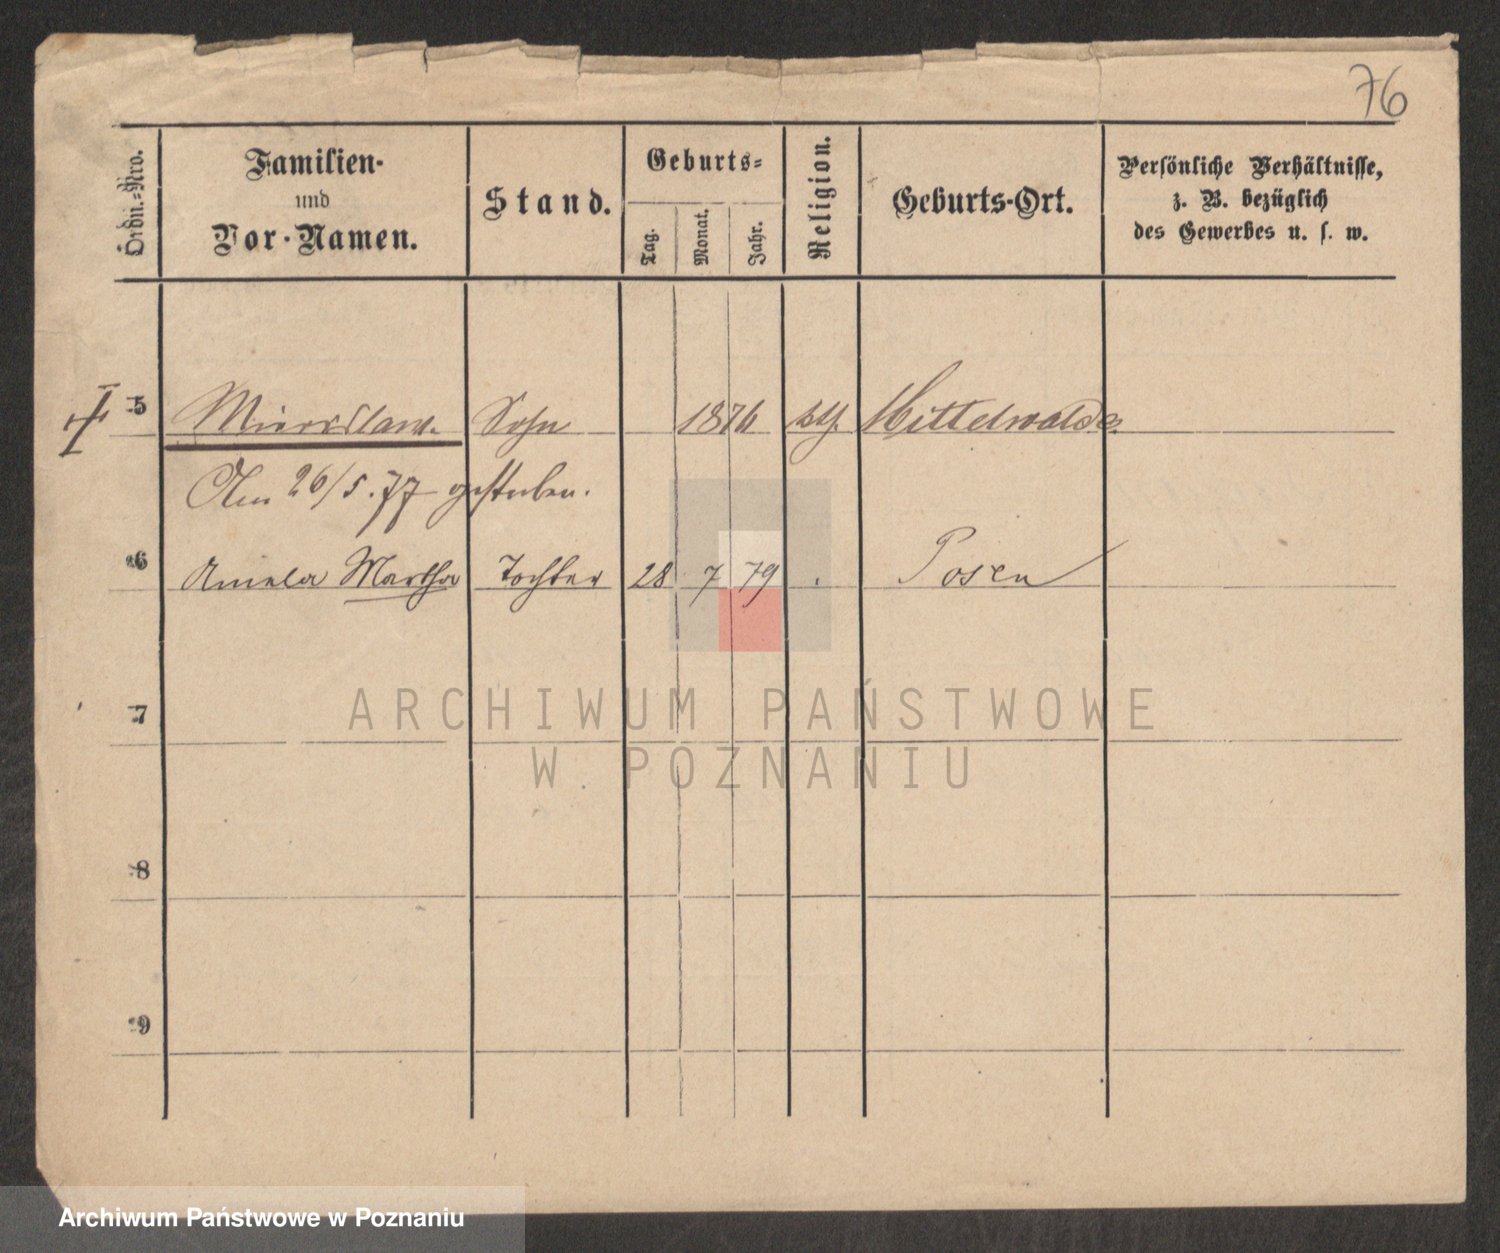 76
Ordn.-Nro.
Familien-
und
Vor-Namen.
Stand.
Geburts-
Tag.
Monat.
Jahr.
Religion.
Geburts-Ort.
Persönliche Verhältnisse,
z. B. bezüglich
des Gewerbes u. s. w.
5 Sohn 1876 kth. Mittelwalde
Am 26/5.77 gestorben.
6 Amela Martha Tochter 28 7 79 . Posen
7
8
9
ARCHIWUM PAŃSTWOWE
W POZNANIU
Archiwum Państwowe w Poznaniu